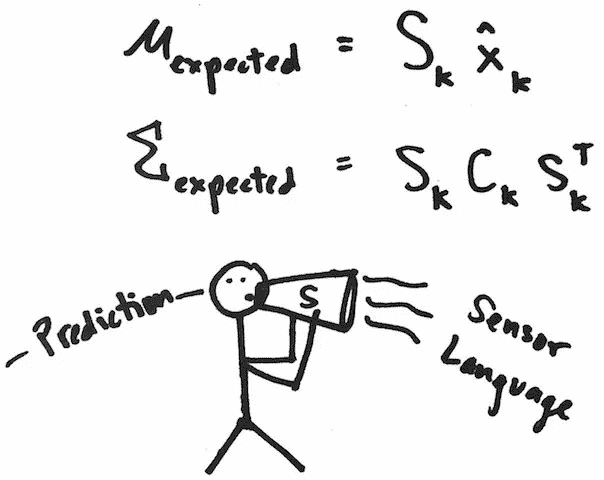 μexpected = Sₖ x̂ₖ
Σexpected = Sₖ Cₖ Sₖᵀ
Prediction
S
Sensor
Language